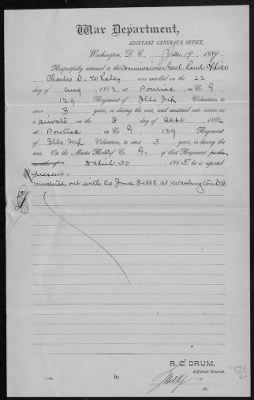 War Department,
ADJUTANT GENERAL'S OFFICE,
Washington, D. C.
Respectfully returned to the Commissioner Genl. Land Office
Charles D. Whaley was enrolled on the 22
day of Aug, 1862, at Pontiac in Co. G
129 Regiment of Ills Inf Volunteers, to
serve 3 years, or during the war, and mustered into service as
a private on the 8 day of Sept 1862
at Pontiac in Co. G, 129 Regiment
of Ills Inf Volunteers, to serve 3 years, or during the
war. On the Muster Roll of Co. G, of that Regiment
April 30 1865, he is reported
present.
mustered out with Co June 8 at Washington D.C.
R. C. DRUM,
Adjutant General.
By